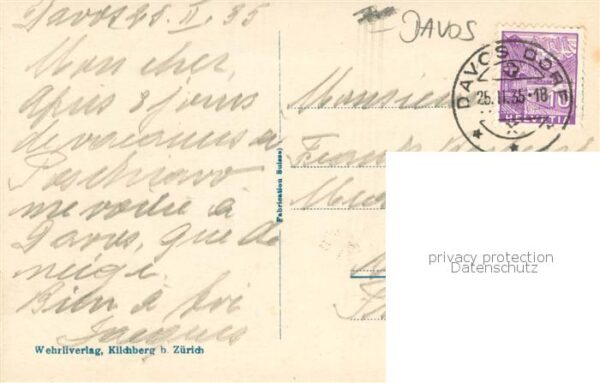 Davos 25. II. 35
Mon cher,
Après 3 jours
de vacances à
Poschiavo
me voilà à
Davos, que de
neige.
Bien à toi
Jacques
DAVOS
DAVOS DORF
25. II. 35-18
10
HELVETIA
Monsieur
Fabrication Suisse
Wehrliverlag, Kilchberg b. Zürich
privacy protection
Datenschutz